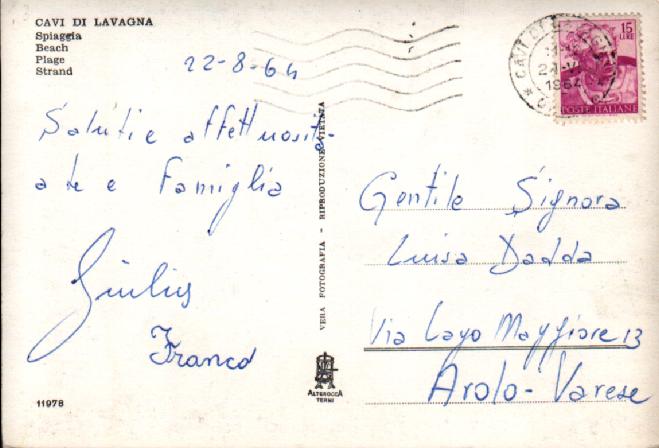 CAVI DI LAVAGNA
Spiaggia
Beach
Plage
Strand
22-8-64
Saluti e affettuosità
a te e Famiglia
Franco
11978
VERA FOTOGRAFIA - RIPRODUZIONE VIETATA
ALTEROCCA
TERNI
15
LIRE
POSTE ITALIANE
1964
Gentile Signora
Luisa Dadda
Via Lago Maggiore 13
Arolo - Varese